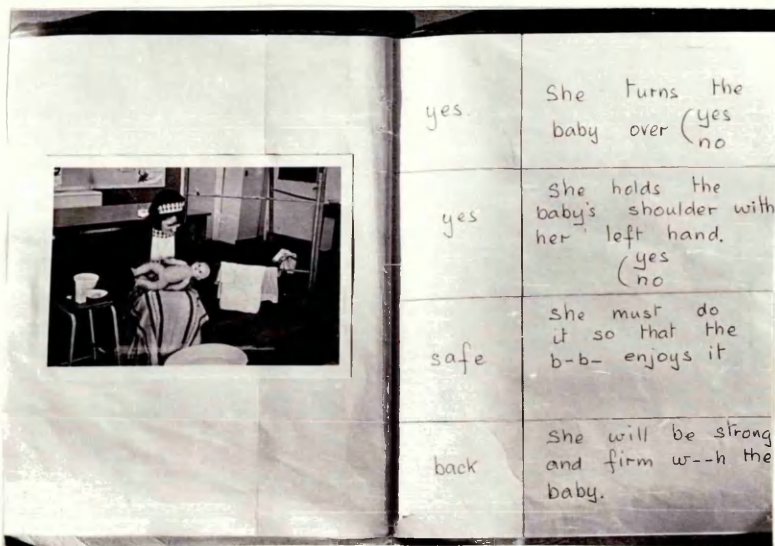 yes.
She turns the
baby over (yes
no
yes
she holds the
baby's shoulder with
her left hand.
(yes
no
safe
she must do
it so that the
b-b- enjoys it
back
She will be strong
and firm w--h the
baby.